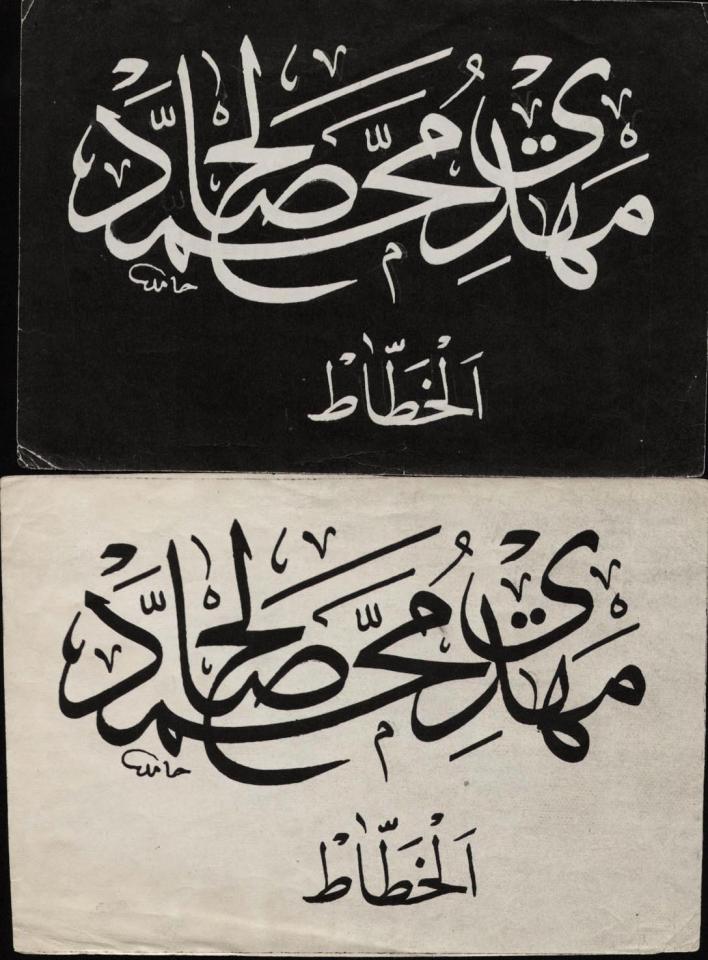 مهدي محمد صالح
حامد
الخطاط
مهدي محمد صالح
حامد
الخطاط